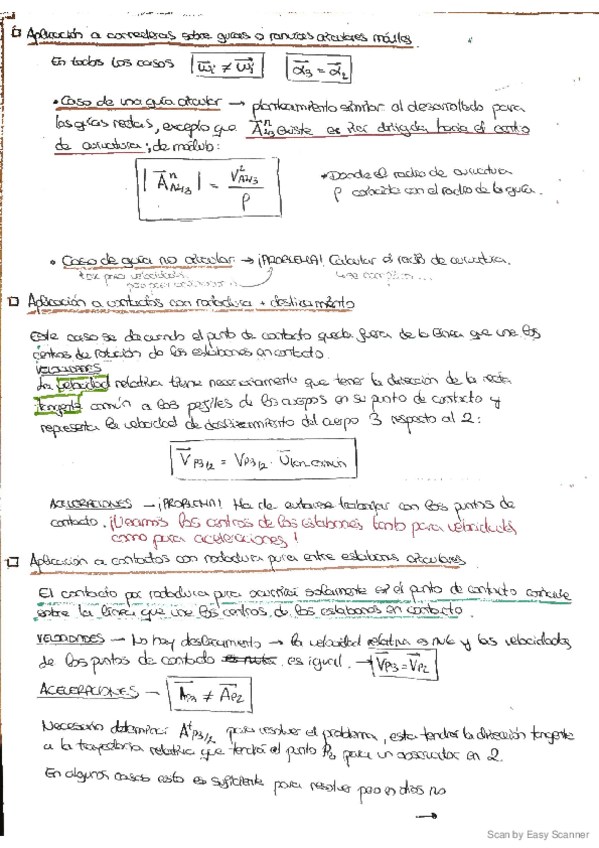 Aplicación a correderas sobre guías o ranuras circulares móviles.
En todos los casos ω⃗i ≠ ω⃗j α⃗3 = α⃗2
• Caso de una guía circular → planteamiento similar al desarrollado para
las guías rectas, excepto que A⃗ⁿ existe e irá dirigida hacia el centro
de curvatura; de módulo:
• Donde el radio de curvatura
ρ coincide con el radio de la guía.
• Caso de guía no circular → ¡PROBLEMA! Calcular el radio de curvatura.
Aplicación a contactos con rodadura + deslizamiento
Este caso se da cuando el punto de contacto queda fuera de la línea que une los
centros de rotación de los eslabones en contacto.
VELOCIDADES
La velocidad relativa tiene necesariamente que tener la dirección de la recta
tangente común a los perfiles de los cuerpos en su punto de contacto y
representa la velocidad de deslizamiento del cuerpo 3 respecto al 2:
V⃗P3/2 = VP3/2 · U⃗tan común
ACELERACIONES → ¡PROBLEMA! Ha de evitarse trabajar con los puntos de
contacto. ¡Usamos los centros de los eslabones tanto para velocidades
como para aceleraciones!
Aplicación a contactos con rodadura pura entre eslabones circulares.
El contacto por rodadura pura ocurrirá solamente si el punto de contacto
sobre la línea que une los centros de los eslabones en contacto.
VELOCIDADES → No hay deslizamiento → la velocidad relativa es nula y las velocidades
de los puntos de contacto es nula es igual. → V⃗P3 = V⃗P2
ACELERACIONES → A⃗P3 ≠ A⃗P2
Necesario determinar AᵗP3/2 para resolver el problema, esta tendrá la dirección tangente
a la trayectoria relativa que tendrá el punto P3 para un observador en 2.
En algunos casos esto es suficiente para resolver pero en otros no
→
Scan by Easy Scanner